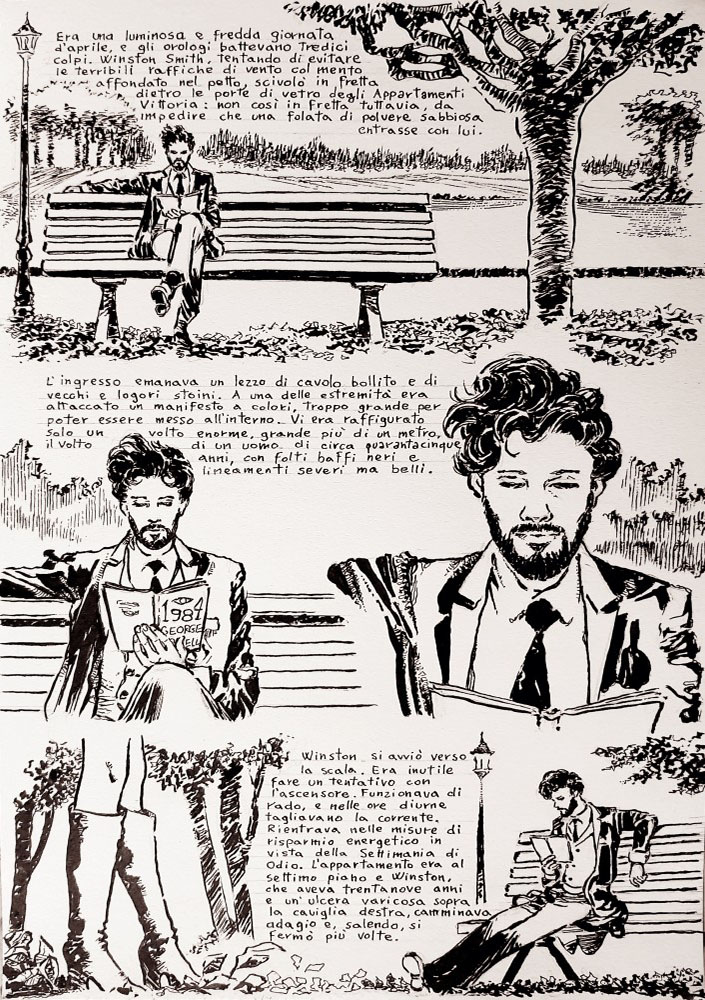 Era una luminosa e fredda giornata
d'aprile, e gli orologi battevano Tredici
colpi. Winston Smith, tentando di evitare
le terribili raffiche di vento col mento
affondato nel petto, scivolò in fretta
dietro le porte di vetro degli Appartamenti
Vittoria: non così in fretta tuttavia, da
impedire che una folata di polvere sabbiosa
entrasse con lui.
L'ingresso emanava un lezzo di cavolo bollito e di
vecchi e logori stoini. A una delle estremità era
attaccato un manifesto a colori, troppo grande per
poter essere messo all'interno. Vi era raffigurato
solo un volto enorme, grande più di un metro,
il volto di un uomo di circa quarantacinque
anni, con folti baffi neri e
lineamenti severi ma belli.
1984
GEORGE
ELL
Winston si avviò verso
la scala. Era inutile
fare un tentativo con
l'ascensore. Funzionava di
rado, e nelle ore diurne
tagliavano la corrente.
Rientrava nelle misure di
risparmio energetico in
vista della Settimania di
Odio. L'appartamento era al
settimo piano e Winston,
che aveva trentanove anni
e un'ulcera varicosa sopra
la caviglia destra, camminava
adagio e, salendo, si
fermò più volte.